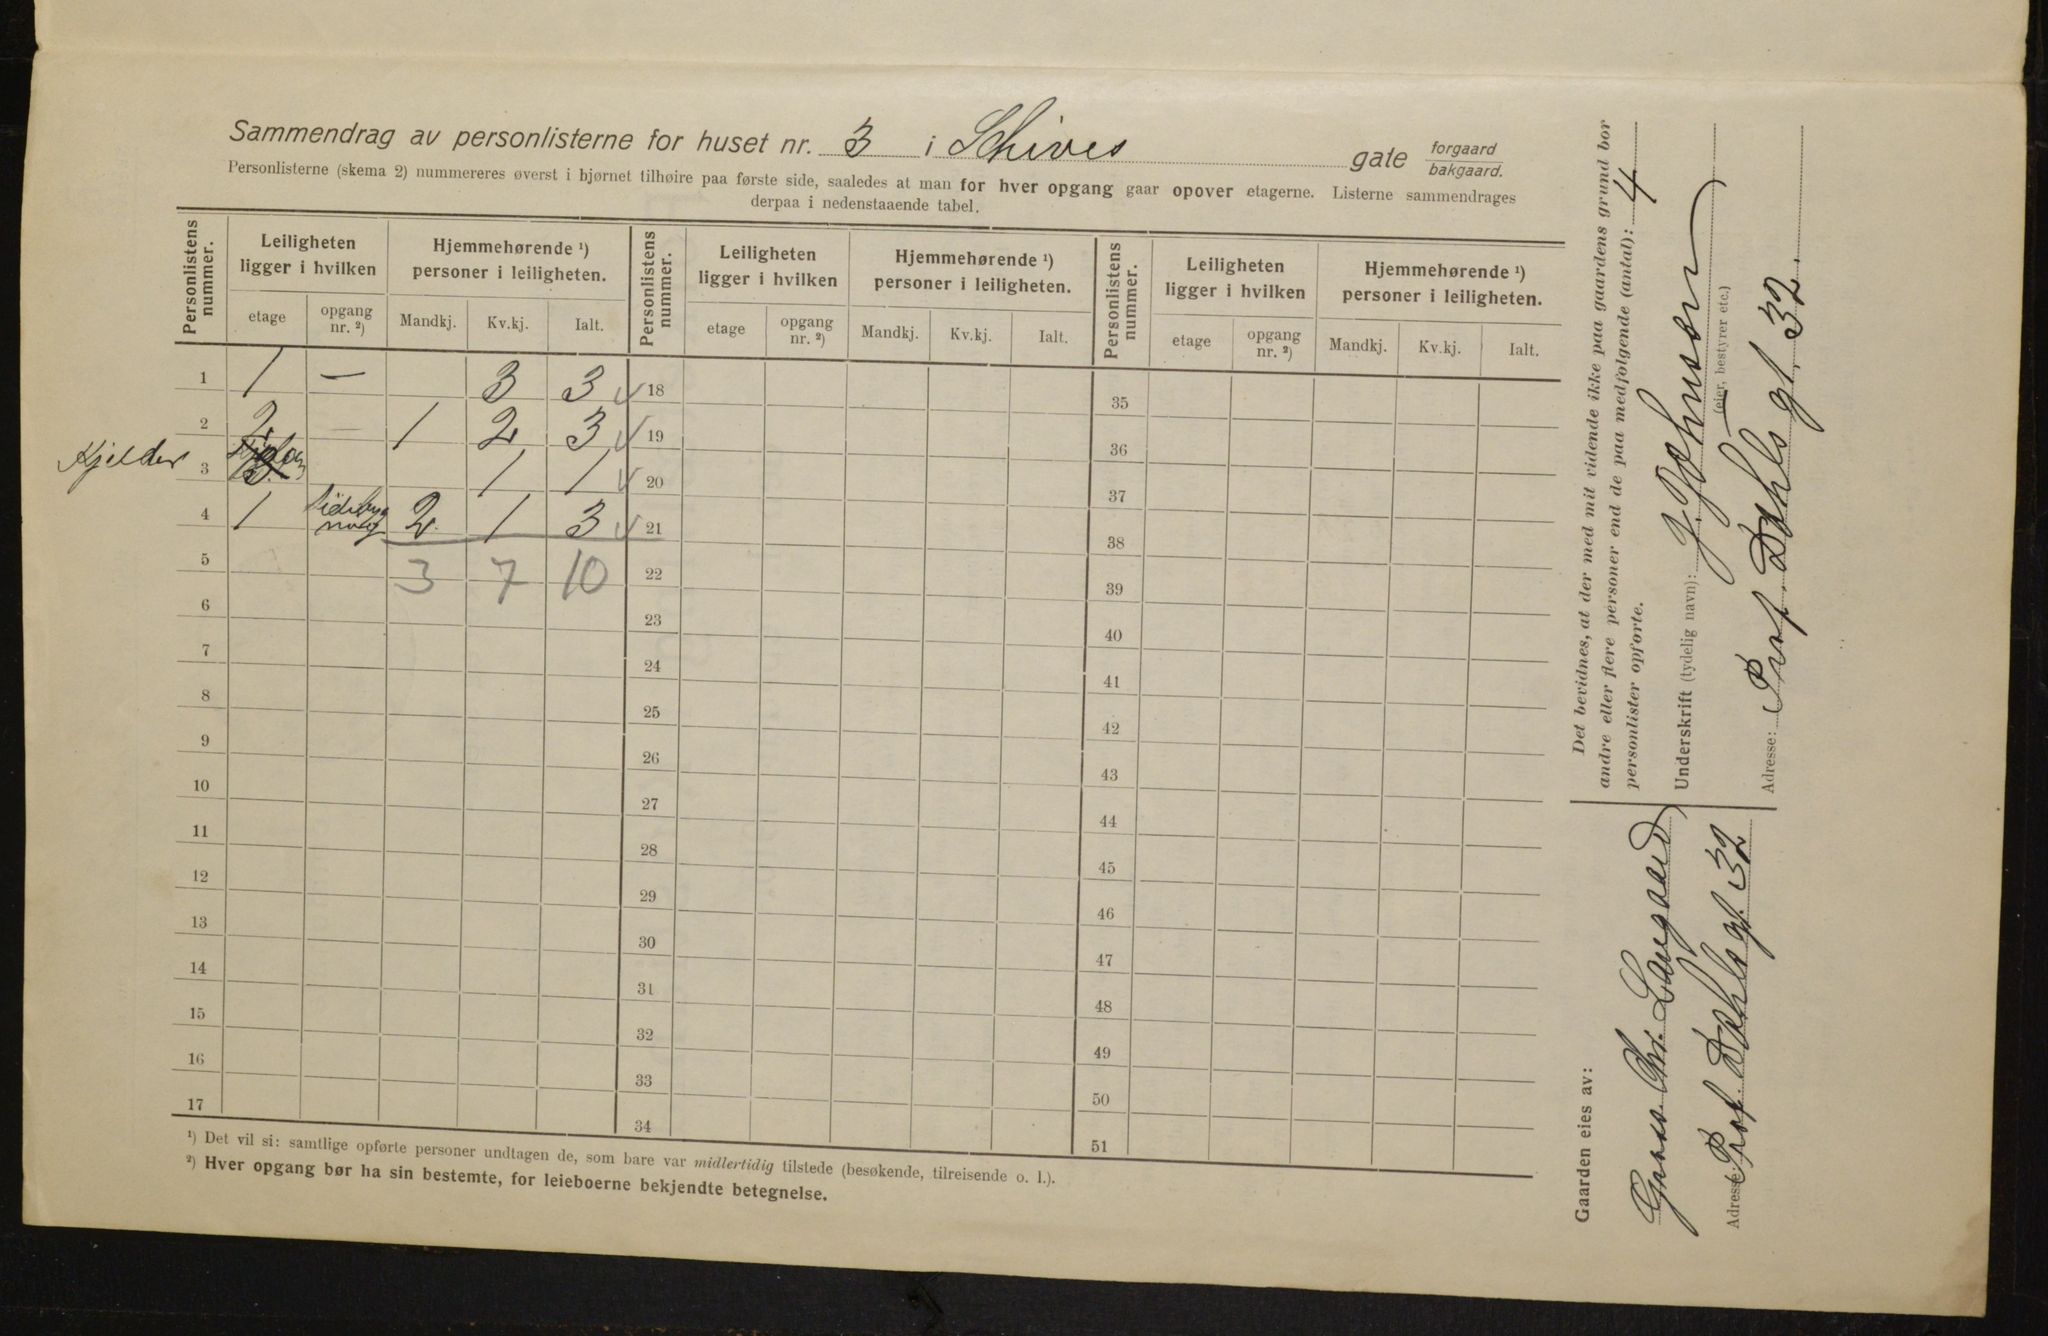 Sammendrag av personlisterne for huset nr. 3 i Schives gate forgaard bakgaard.
Personlisterne (skema 2) nummereres øverst i hjørnet tilhøire paa første side, saaledes at man for hver opgang gaar opover etagerne. Listerne sammendrages
derpaa i nedenstaaende tabel.
Personlistens nummer. Leiligheten ligger i hvilken Hjemmehørende ¹) personer i leiligheten. Personlistens nummer. Leiligheten ligger i hvilken Hjemmehørende ¹) personer i leiligheten. Personlistens nummer. Leiligheten ligger i hvilken Hjemmehørende ¹) personer i leiligheten.
etage opgang nr. ²) Mandkj. Kv.kj. Ialt. etage opgang nr. ²) Mandkj. Kv.kj. Ialt. etage opgang nr. ²) Mandkj. Kv.kj. Ialt.
1 1 — 3 3 18 35
2 2 — 1 2 3 19 36
Kjelder 3 1 1 20 37
4 1 Sidebygning 2 1 3 21 38
5 3 7 10 22 39
6 23 40
7 24 41
8 25 42
9 26 43
10 27 44
11 28 45
12 29 46
13 30 47
14 31 48
15 32 49
16 33 50
17 34 51
¹) Det vil si: samtlige opførte personer undtagen de, som bare var midlertidig tilstede (besøkende, tilreisende o. l.).
²) Hver opgang bør ha sin bestemte, for leieboerne bekjendte betegnelse.
Det bevidnes, at der med mit vidende ikke paa gaardens grund bor
andre eller flere personer end de paa medfølgende (antal): 4
personlister opførte.
Underskrift (tydelig navn): J. Johnson
(eier, bestyrer etc.)
Adresse: Prof. Dahls gt. 32.
Gaarden eies av:
Chr. Langaard
Adresse: Prof. Dahls gt. 32